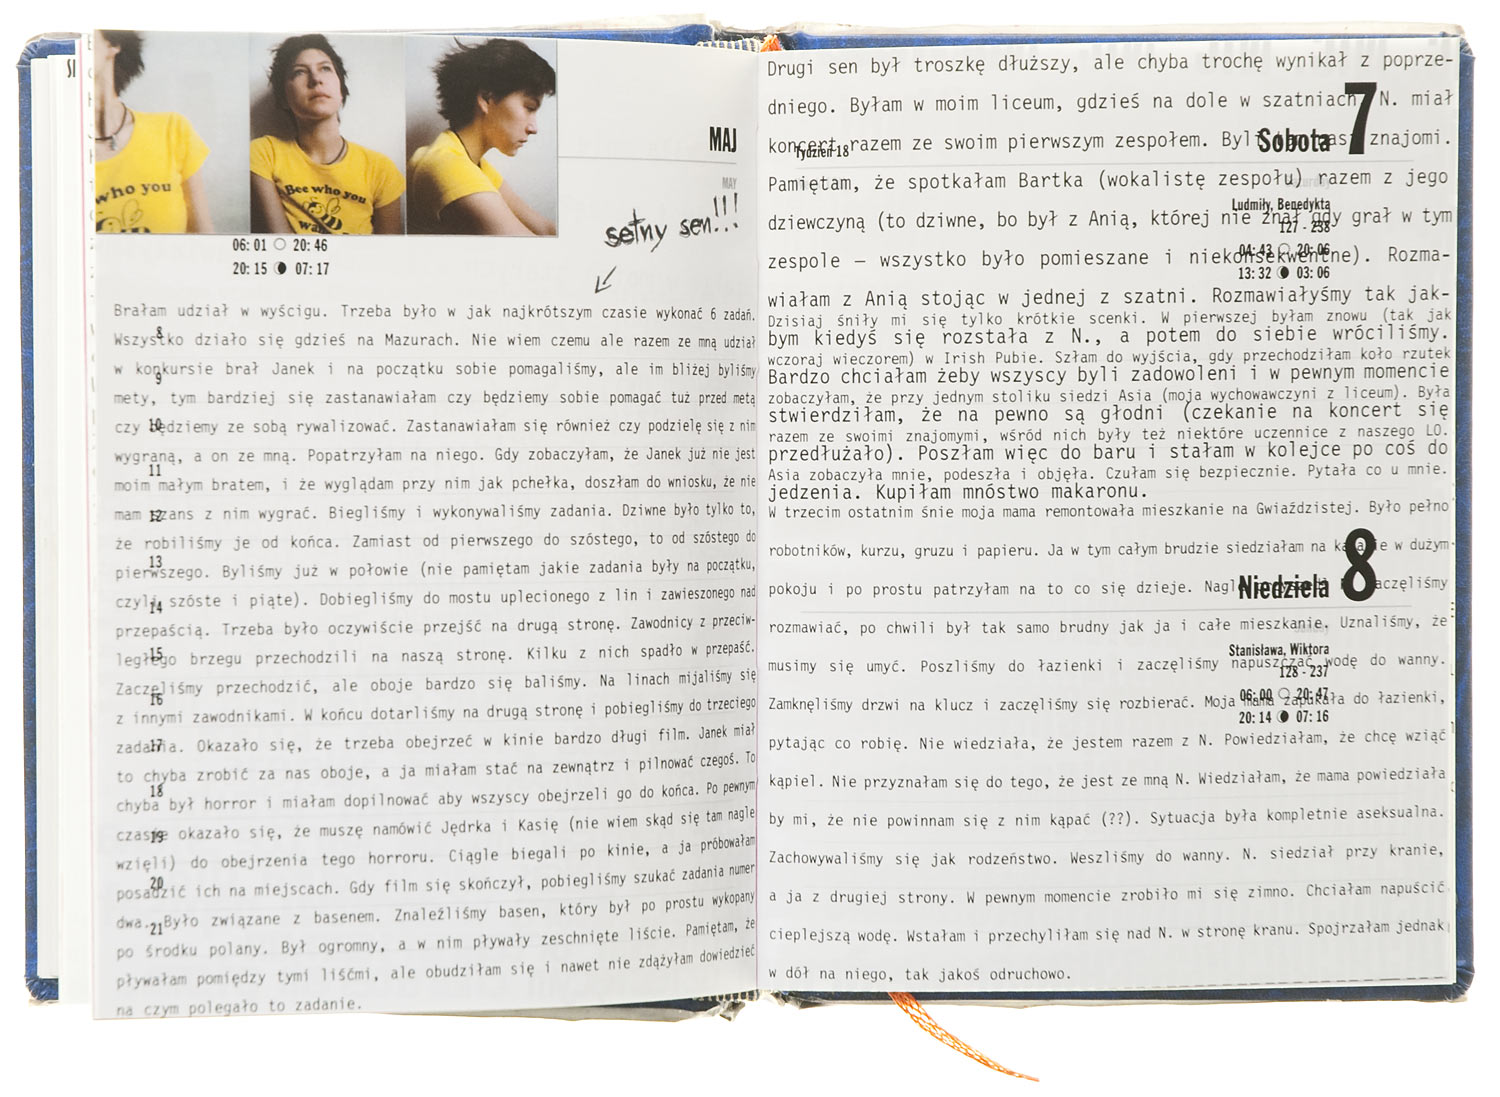 SI
who you
Bee who you
wa
MAJ
MAY
setny sen!!!
06:01 20:46
20:15 07:17
Brałam udział w wyścigu. Trzeba było w jak najkrótszym czasie wykonać 6 zadań.
Wszystko działo się gdzieś na Mazurach. Nie wiem czemu ale razem ze mną udział
w konkursie brał Janek i na początku sobie pomagaliśmy, ale im bliżej byliśmy
mety, tym bardziej się zastanawiałam czy będziemy sobie pomagać tuż przed metą
czy będziemy ze sobą rywalizować. Zastanawiałam się również czy podzielę się z nim
wygraną, a on ze mną. Popatrzyłam na niego. Gdy zobaczyłam, że Janek już nie jest
moim małym bratem, i że wyglądam przy nim jak pchełka, doszłam do wniosku, że nie
mam szans z nim wygrać. Biegliśmy i wykonywaliśmy zadania. Dziwne było tylko to,
że robiliśmy je od końca. Zamiast od pierwszego do szóstego, to od szóstego do
pierwszego. Byliśmy już w połowie (nie pamiętam jakie zadania były na początku,
czyli szóste i piąte). Dobiegliśmy do mostu uplecionego z lin i zawieszonego nad
przepaścią. Trzeba było oczywiście przejść na drugą stronę. Zawodnicy z przeciw-
ległego brzegu przechodzili na naszą stronę. Kilku z nich spadło w przepaść.
Zaczęliśmy przechodzić, ale oboje bardzo się baliśmy. Na linach mijaliśmy się
z innymi zawodnikami. W końcu dotarliśmy na drugą stronę i pobiegliśmy do trzeciego
zadania. Okazało się, że trzeba obejrzeć w kinie bardzo długi film. Janek miał
to chyba zrobić za nas oboje, a ja miałam stać na zewnątrz i pilnować czegoś. To
chyba był horror i miałam dopilnować aby wszyscy obejrzeli go do końca. Po pewnym
czasie okazało się, że muszę namówić Jędrka i Kasię (nie wiem skąd się tam nagle
wzięli) do obejrzenia tego horroru. Ciągle biegali po kinie, a ja próbowałam
posadzić ich na miejscach. Gdy film się skończył, pobiegliśmy szukać zadania numer
dwa. Było związane z basenem. Znaleźliśmy basen, który był po prostu wykopany
po środku polany. Był ogromny, a w nim pływały zeschnięte liście. Pamiętam, że
pływałam pomiędzy tymi liśćmi, ale obudziłam się i nawet nie zdążyłam dowiedzieć
na czym polegało to zadanie.
8
9
10
11
12
13
14
15
16
17
18
19
20
21
Drugi sen był troszkę dłuższy, ale chyba trochę wynikał z poprze-
dniego. Byłam w moim liceum, gdzieś na dole w szatniach. N. miał
koncert razem ze swoim pierwszym zespołem. Byli tam nasi znajomi.
Pamiętam, że spotkałam Bartka (wokalistę zespołu) razem z jego
dziewczyną (to dziwne, bo był z Anią, której nie znał gdy grał w tym
zespole – wszystko było pomieszane i niekonsekwentne). Rozma-
wiałam z Anią stojąc w jednej z szatni. Rozmawiałyśmy tak jak-
Dzisiaj śniły mi się tylko krótkie scenki. W pierwszej byłam znowu (tak jak
bym kiedyś się rozstała z N., a potem do siebie wróciliśmy.
wczoraj wieczorem) w Irish Pubie. Szłam do wyjścia, gdy przechodziłam koło rzutek
Bardzo chciałam żeby wszyscy byli zadowoleni i w pewnym momencie
zobaczyłam, że przy jednym stoliku siedzi Asia (moja wychowawczyni z liceum). Była
stwierdziłam, że na pewno są głodni (czekanie na koncert się
razem ze swoimi znajomymi, wśród nich były też niektóre uczennice z naszego LO.
przedłużało). Poszłam więc do baru i stałam w kolejce po coś do
Asia zobaczyła mnie, podeszła i objęła. Czułam się bezpiecznie. Pytała co u mnie.
jedzenia. Kupiłam mnóstwo makaronu.
W trzecim ostatnim śnie moja mama remontowała mieszkanie na Gwiaździstej. Było pełno
robotników, kurzu, gruzu i papieru. Ja w tym całym brudzie siedziałam na kanapie w dużym
pokoju i po prostu patrzyłam na to co się dzieje. Nagle N. zaczęliśmy
rozmawiać, po chwili był tak samo brudny jak ja i całe mieszkanie. Uznaliśmy, że
musimy się umyć. Poszliśmy do łazienki i zaczęliśmy napuszczać wodę do wanny.
Zamknęliśmy drzwi na klucz i zaczęliśmy się rozbierać. Moja mama zapukała do łazienki,
pytając co robię. Nie wiedziała, że jestem razem z N. Powiedziałam, że chcę wziąć
kąpiel. Nie przyznałam się do tego, że jest ze mną N. Wiedziałam, że mama powiedziała
by mi, że nie powinnam się z nim kąpać (??). Sytuacja była kompletnie aseksualna.
Zachowywaliśmy się jak rodzeństwo. Weszliśmy do wanny. N. siedział przy kranie,
a ja z drugiej strony. W pewnym momencie zrobiło mi się zimno. Chciałam napuścić
cieplejszą wodę. Wstałam i przechyliłam się nad N. w stronę kranu. Spojrzałam jednak
w dół na niego, tak jakoś odruchowo.
7
Sobota
Tydzień 18
Saturday
Ludmiły, Benedykta
127 - 238
04:43 20:06
13:32 03:06
8
Niedziela
Sunday
Stanisława, Wiktora
128 - 237
06:00 20:47
20:14 07:16